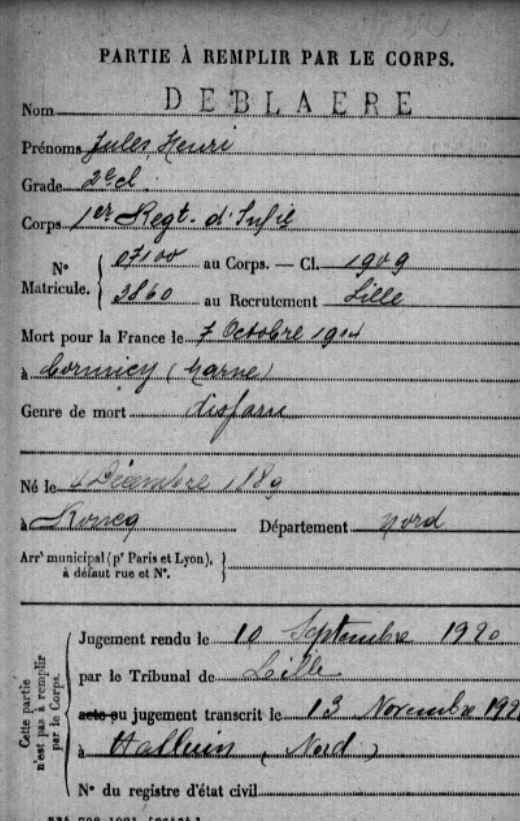 PARTIE À REMPLIR PAR LE CORPS.
Nom DEBLAERE
Prénoms Jules Henri
Grade 2e cl.
Corps 1er Regt. d'Infie
No Matricule. 07100 au Corps. — Cl. 1909
3860 au Recrutement Lille
Mort pour la France le 7 Octobre 1914
à Cormicy (Marne)
Genre de mort disparu
Né le 4 Décembre 1889
à Roncq Département Nord
Arrt municipal (pr Paris et Lyon), à défaut rue et No.
Cette partie n'est pas à remplir par le Corps.
Jugement rendu le 10 Septembre 1920
par le Tribunal de Lille
acte ou jugement transcrit le 13 Novembre 192
à Halluin (Nord)
No du registre d'état civil